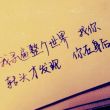 我寻遍整个世界 我你
轻头才发现 你在身后